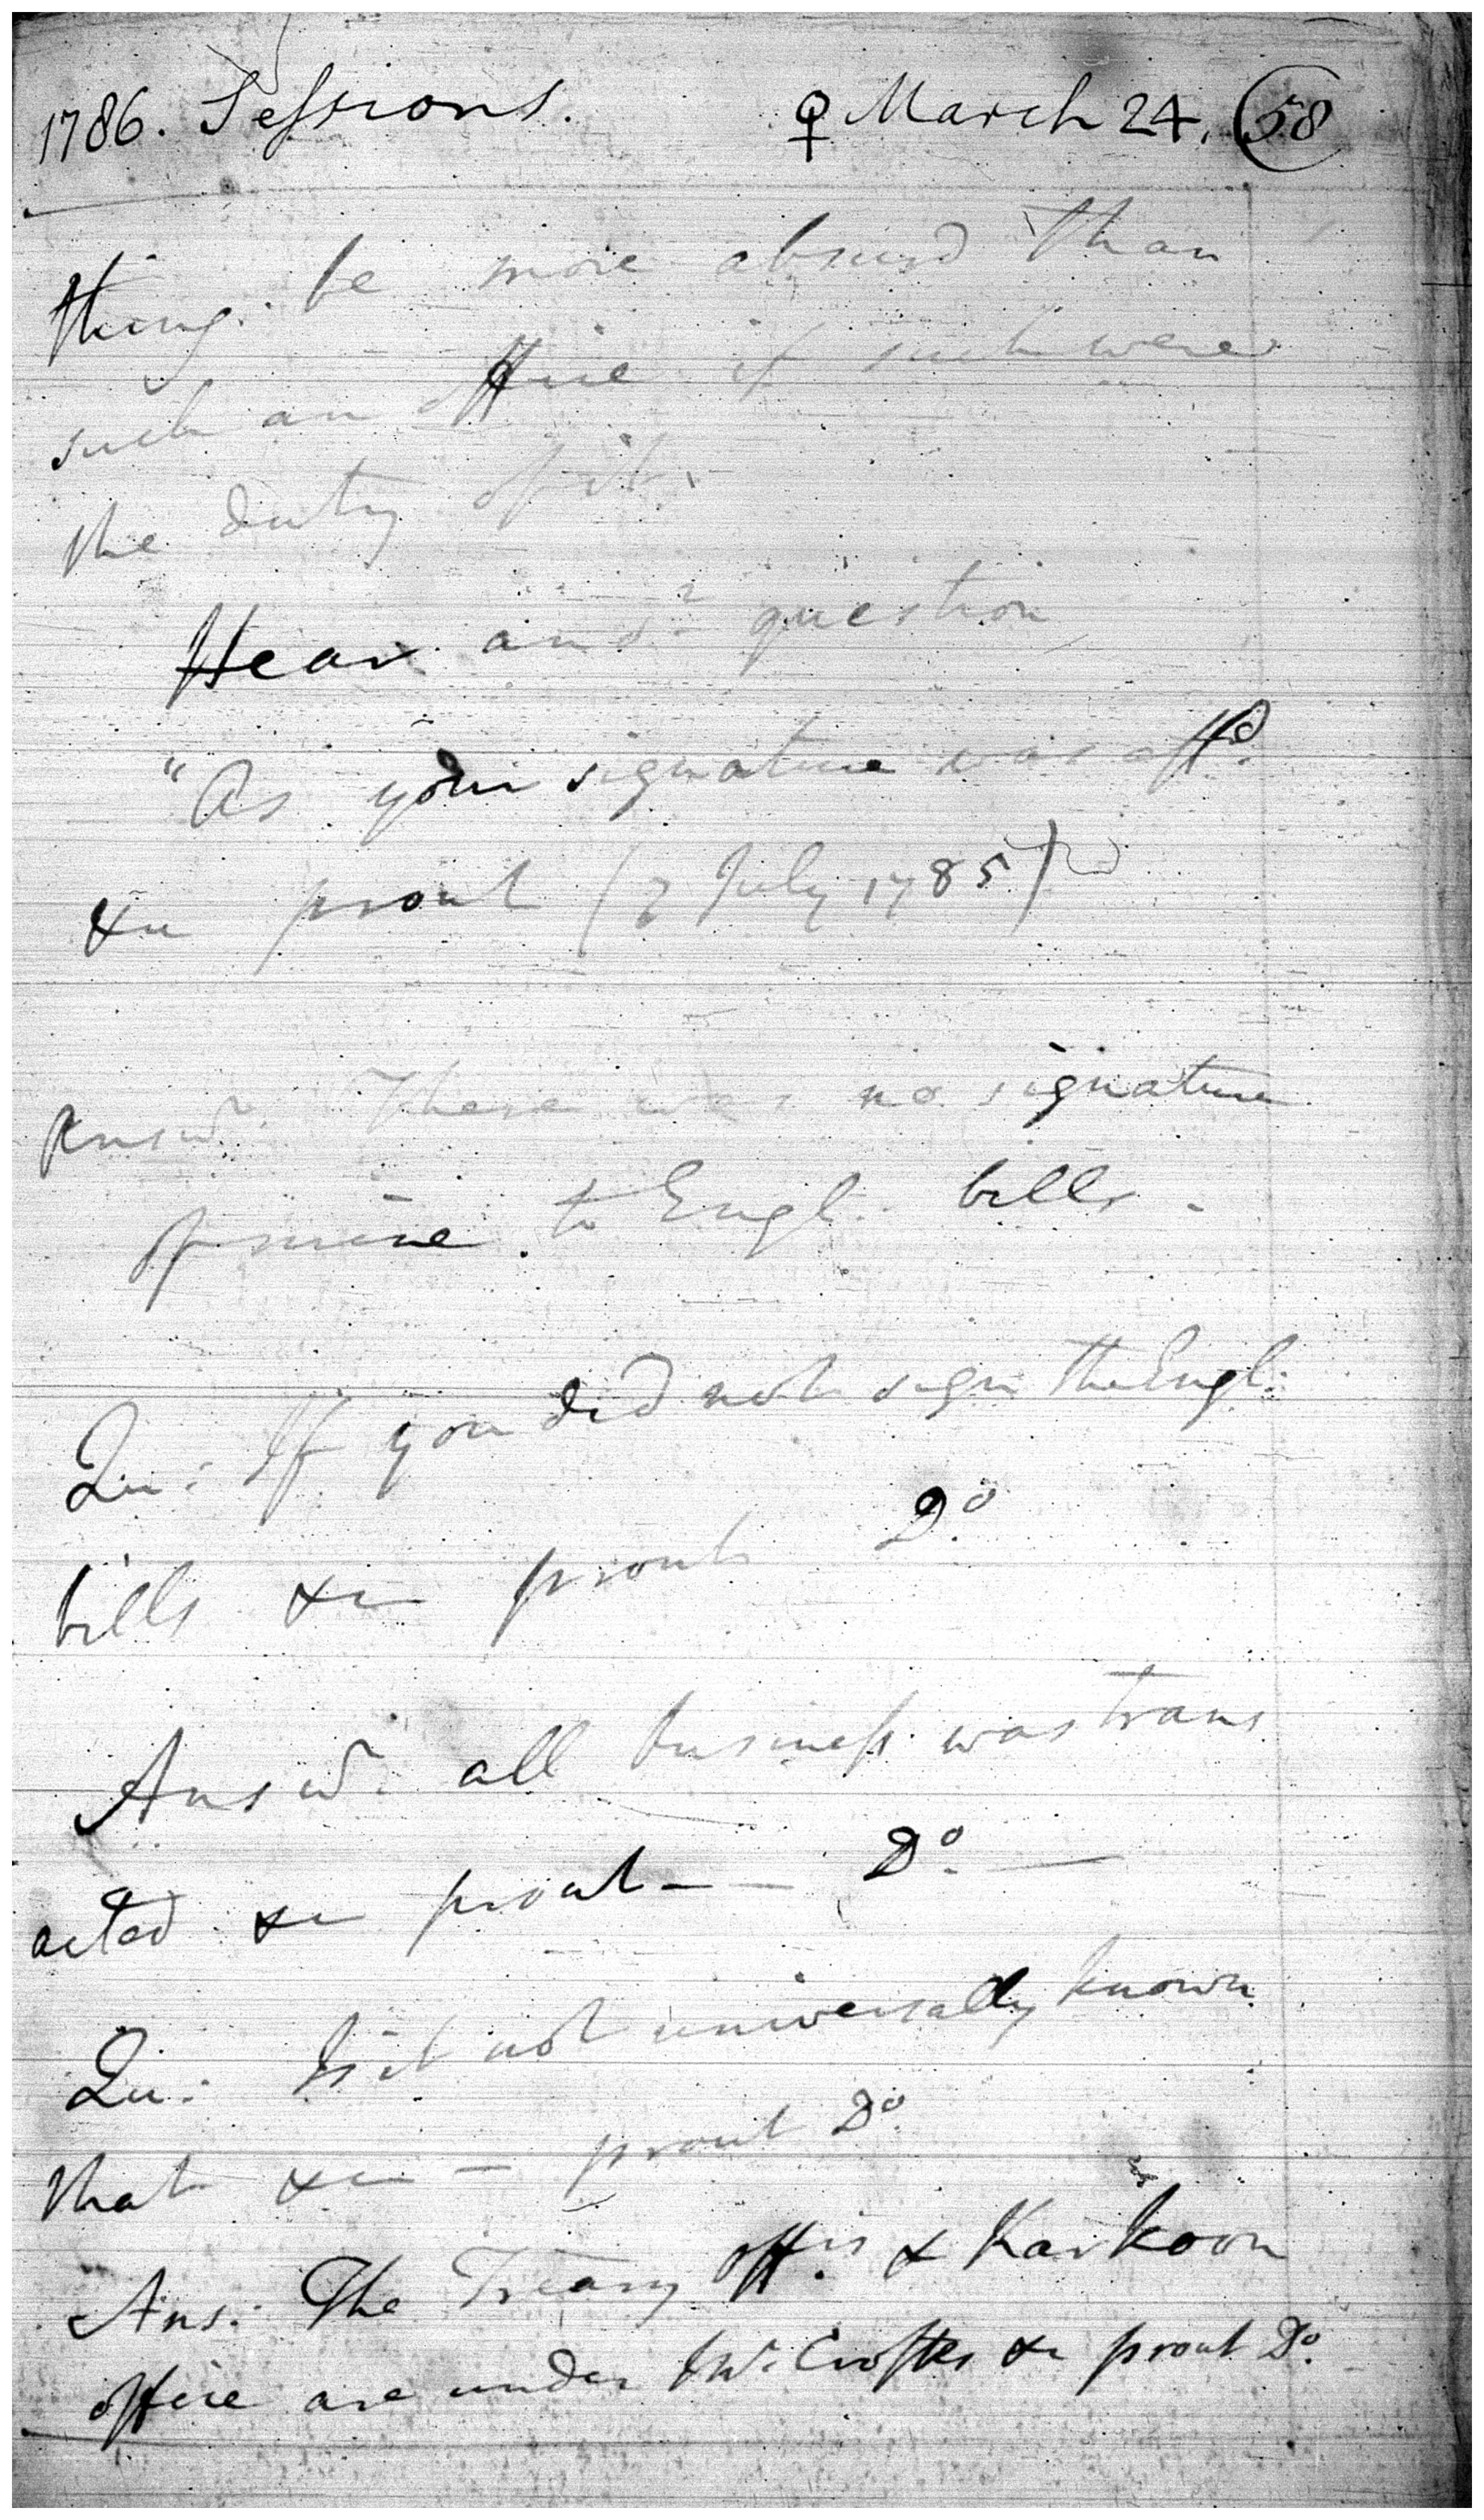 1786. Sessions. ♀ March 24. (58
thing be more absurd than
such an office if such were
the duty of it.
Hear and question
"As your signature was affd.
&c prout (7 July 1785)
Answr. There was no signature
of mine to Engl. bills.
Qu: If you did not sign the Engl:
bills &c prout Do.
Answr. all business was trans
acted &c prout — — Do. —
Qu: Is it not universally known
that &c — prout Do.
Ans: The Treasy offis. & Karkoon
office are under Mr. Croftes &c prout Do.